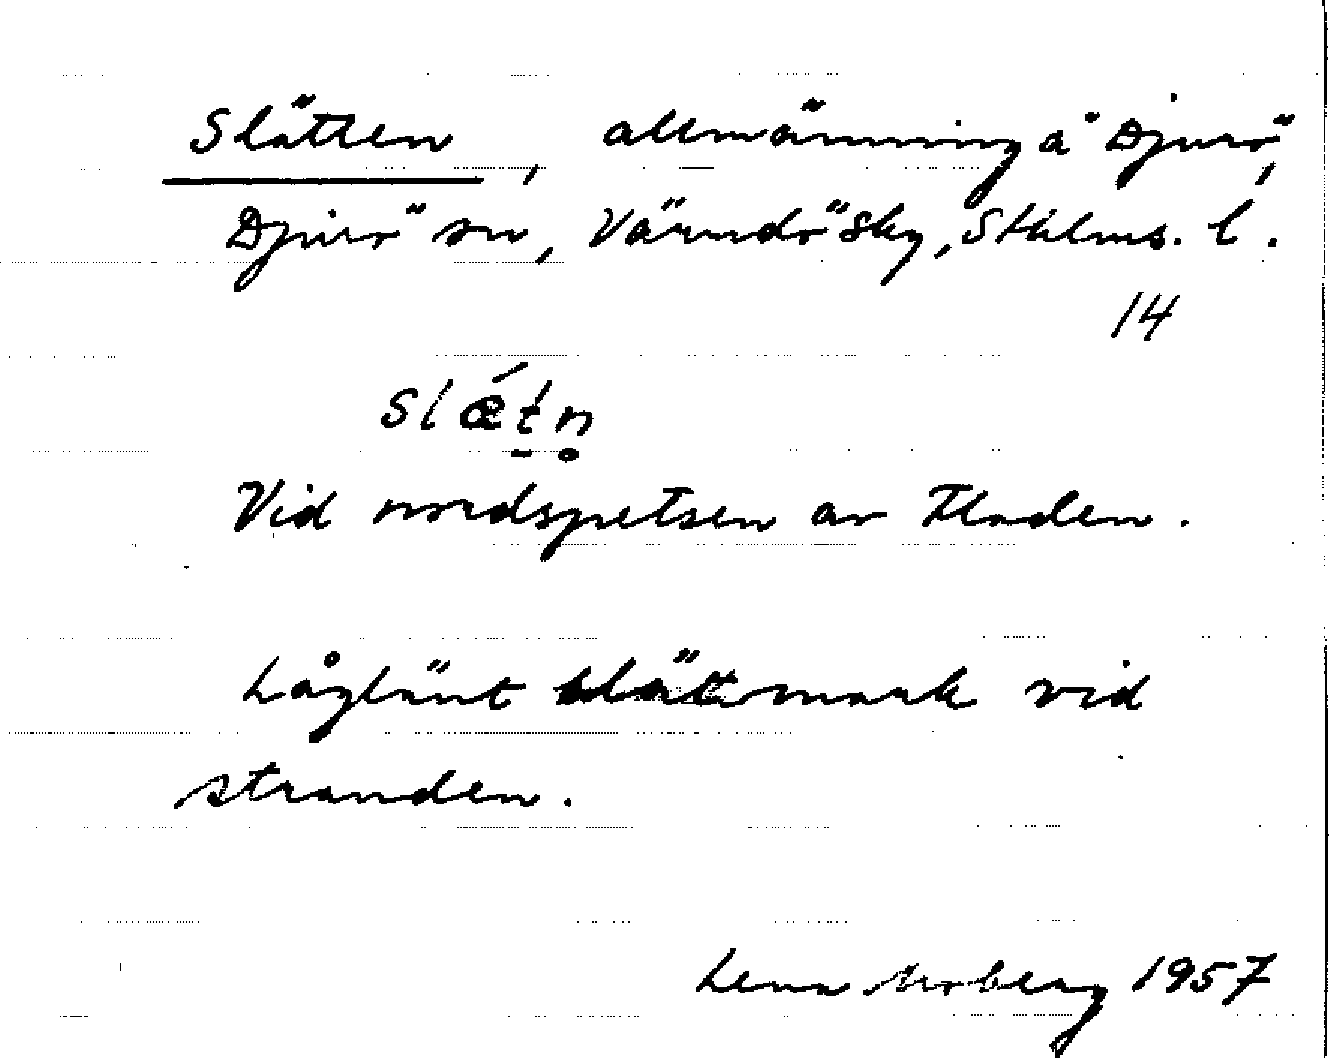 Slätten, allmänning å Djurö,
Djurö sn, Värmdö sky, Sthlms. l.
14
slǽt̠n̥
Vid nordspetsen av Fladen.
Låglänt slättmark vid
stranden.
Lena Moberg 1957